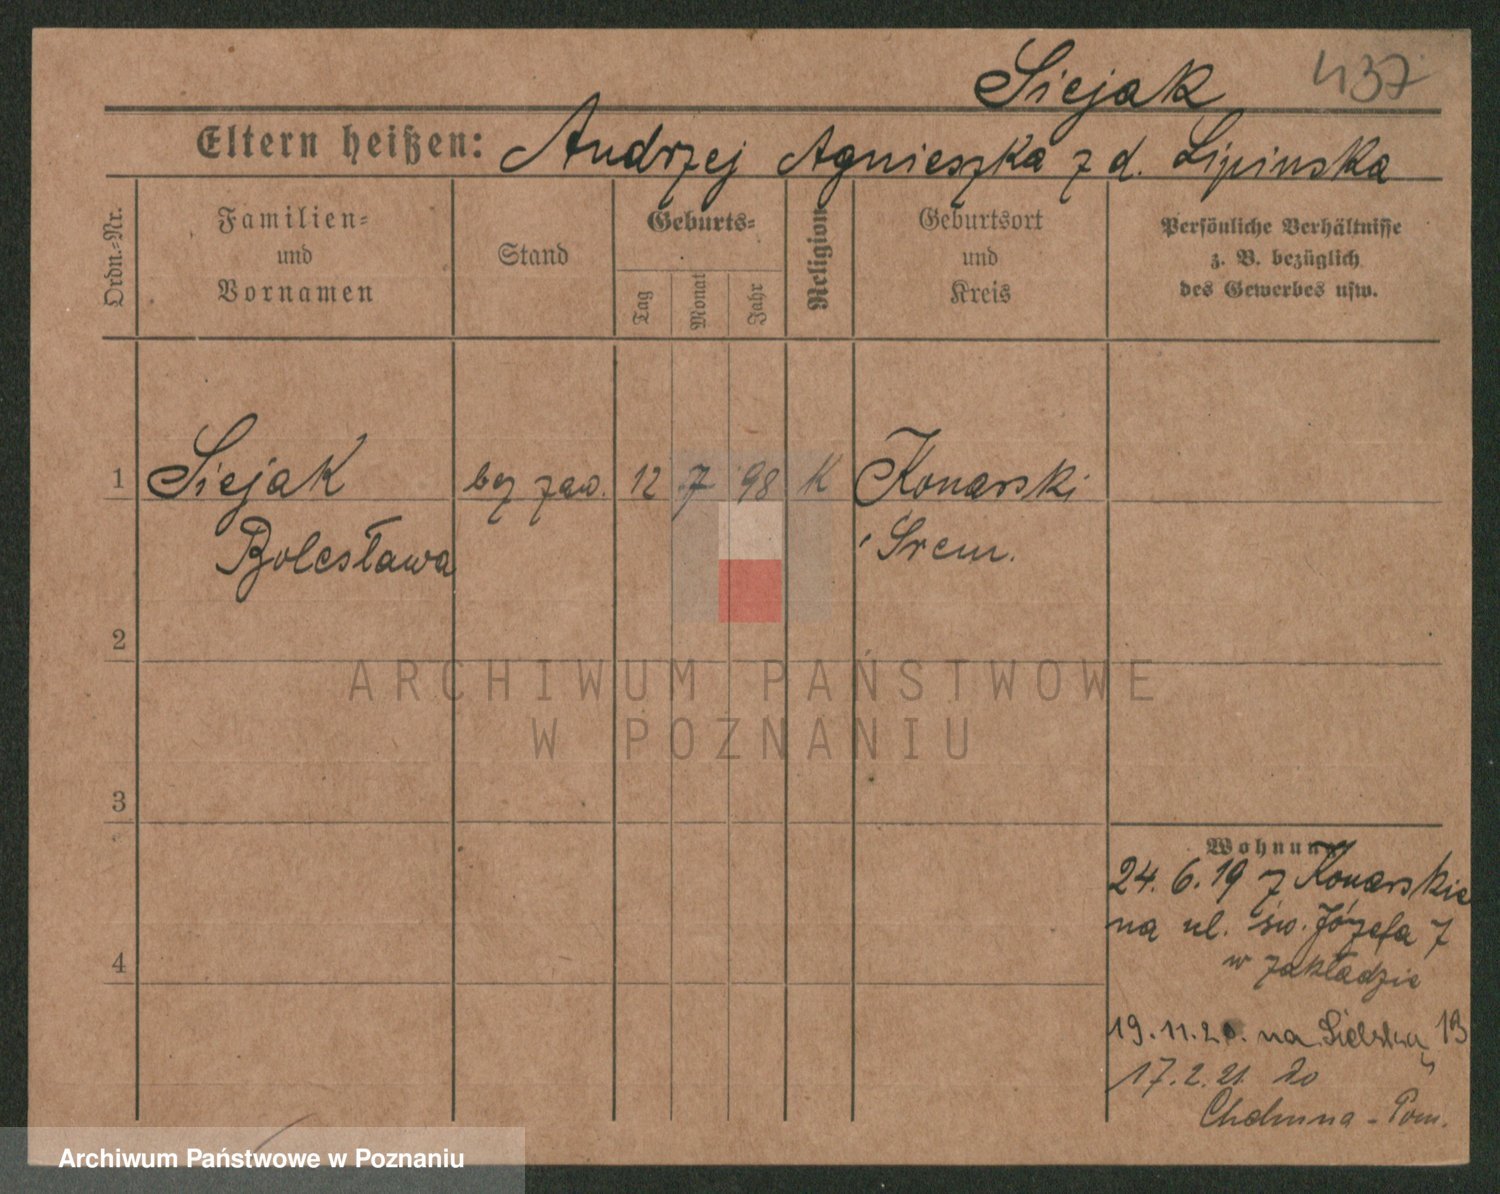 Siejak 437
Eltern heißen: Andrzej Agnieszka z d. Lipinska
Ordn.-Nr.
Familien-
und
Vornamen
Stand
Geburts-
Tag
Monat
Jahr
Religion
Geburtsort
und
Kreis
Persönliche Verhältnisse
z. B. bezüglich
des Gewerbes usw.
1 Siejak bez zaw. 12 7 98 K Konarski
Bolesława Śrem.
2
ARCHIWUM PAŃSTWOWE
W POZNANIU
3
Wohnung
24. 6. 19 z Konarskie
na ul. św. Józefa 7
w zakładzie
4
19. 11. 20. na 13
17. 2. 21. do
Chełmna - Pom.
Archiwum Państwowe w Poznaniu